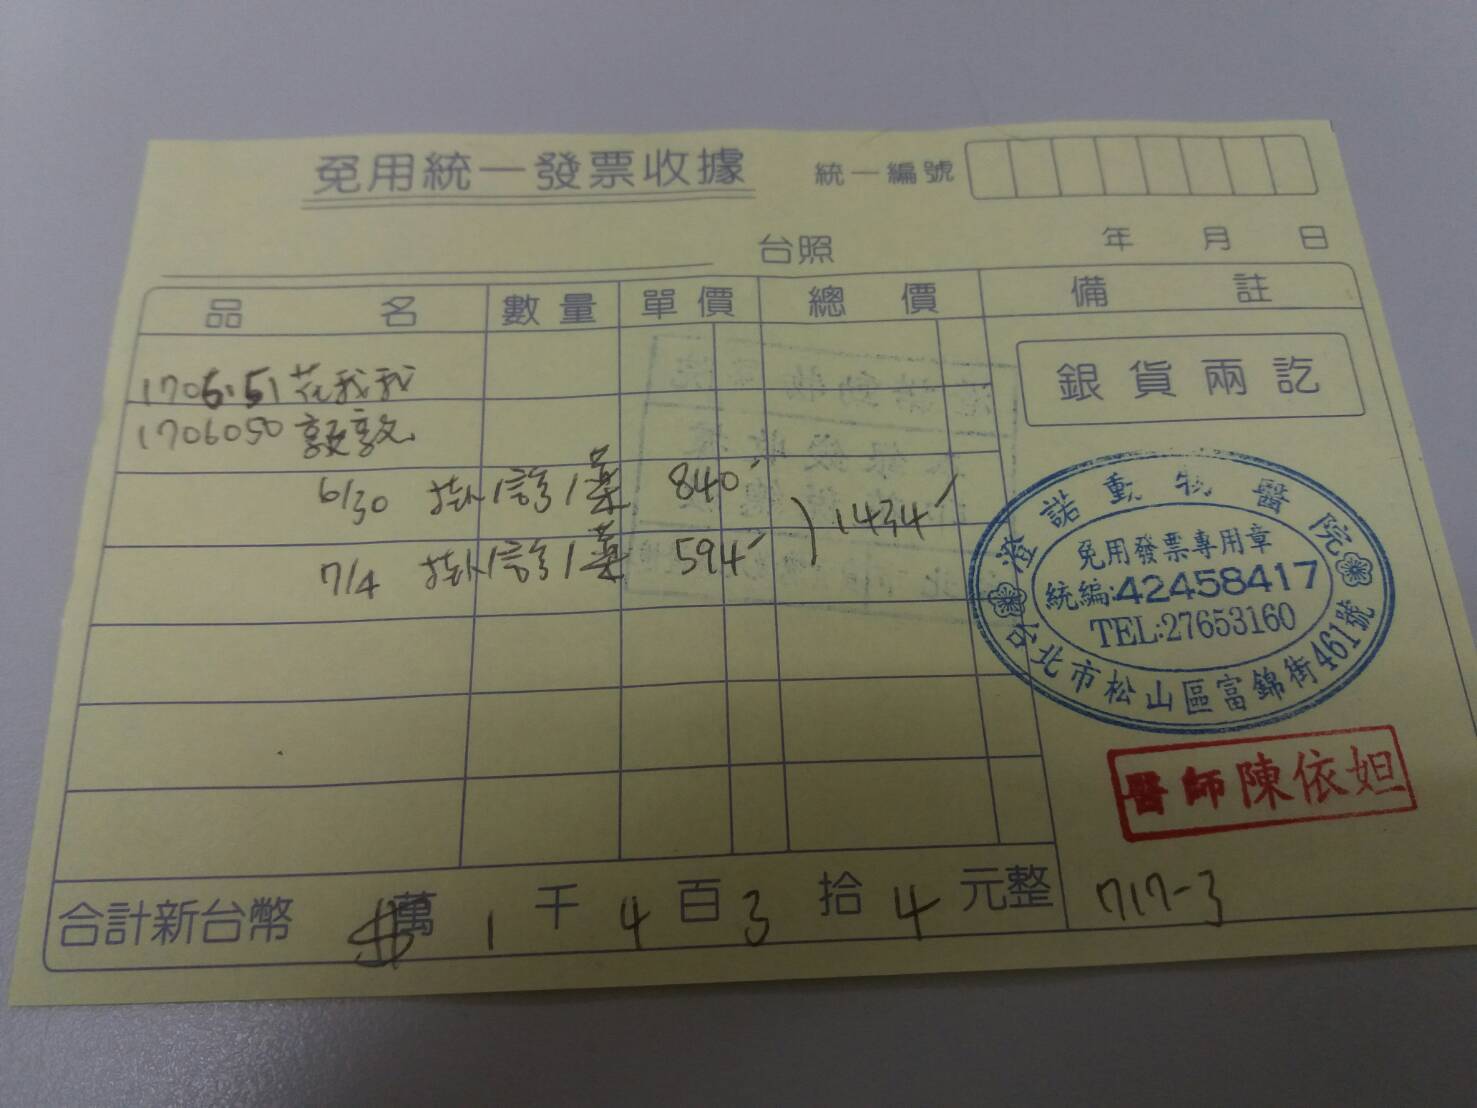 免用統一發票收據
統一編號
台照
年 月 日
品 名 數量 單價 總價 備註
銀貨兩訖
1706051 花我我
1706050 敦敦
6/30 掛/診/藥 840
7/4 掛/診/藥 594
1434
澄諾動物醫院
免用發票專用章
統編:42458417
TEL:27653160
台北市松山區富錦街461號
醫師陳依妲
合計新台幣 萬 1 千 4 百 3 拾 4 元整
717-3